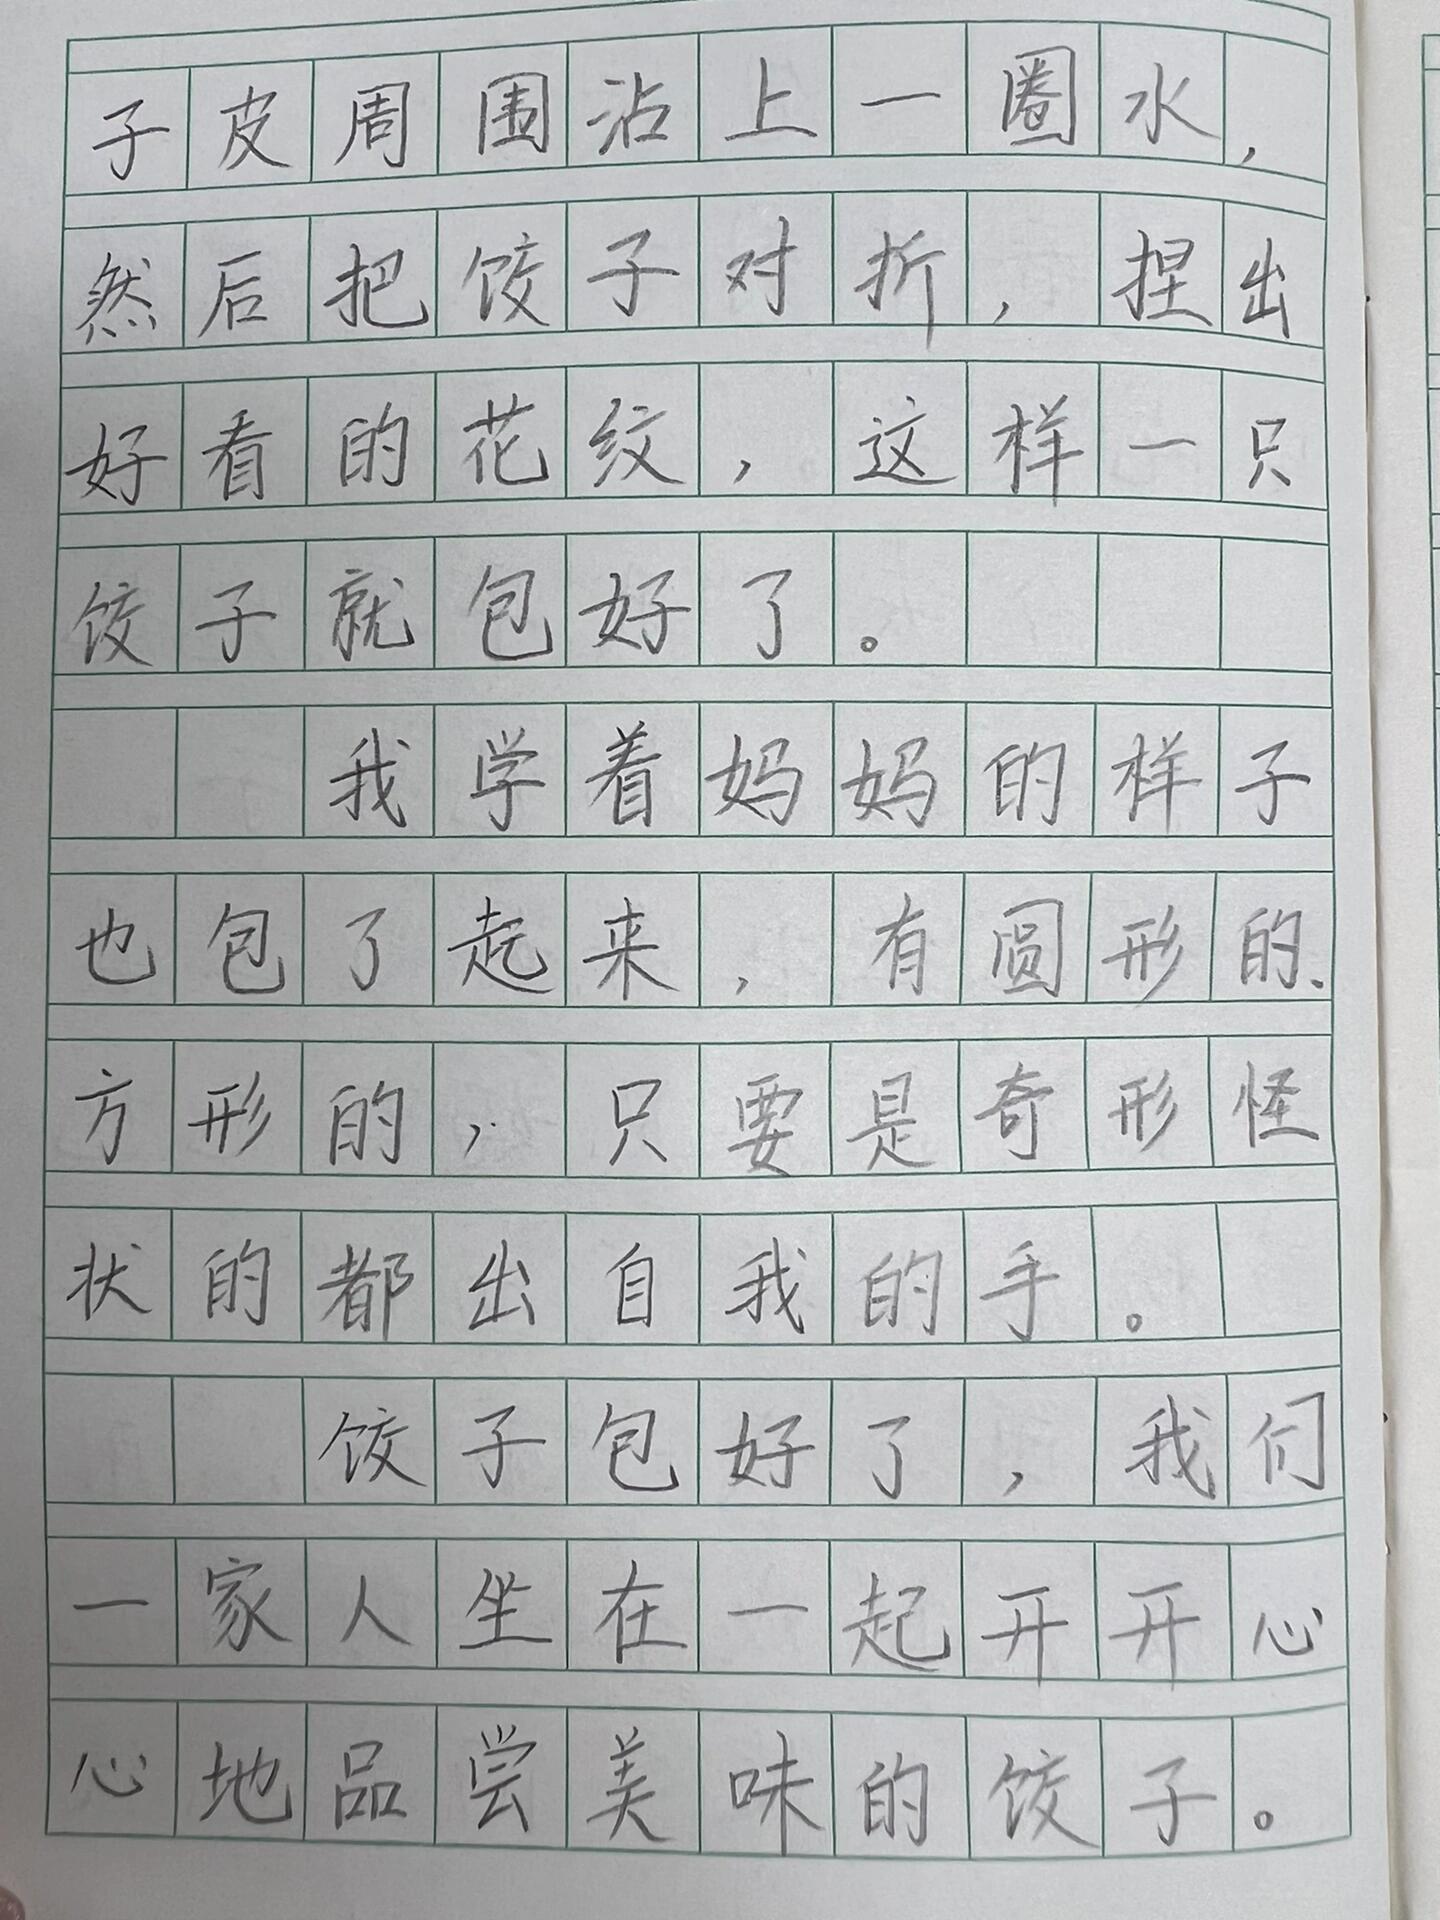 子皮周围沾上一圈水，
然后把饺子对折，捏出
好看的花纹，这样一只
饺子就包好了。
我学着妈妈的样子
也包了起来，有圆形的、
方形的，只要是奇形怪
状的都出自我的手。
饺子包好了，我们
一家人坐在一起开开心
心地品尝美味的饺子。